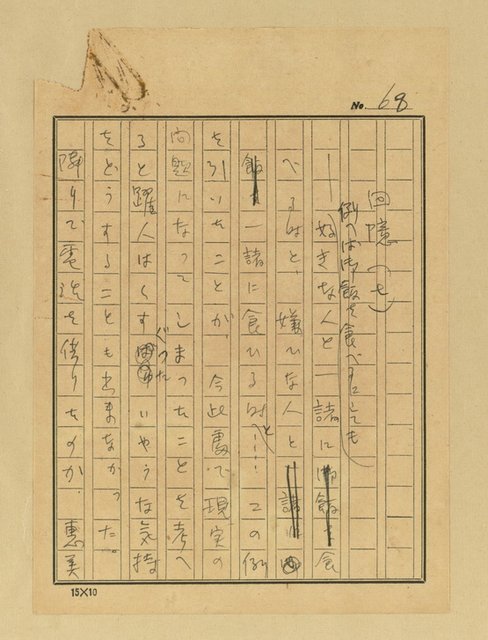 No. 68
回憶（七）
例へば御飯を食べるにしても
ー好きな人と一諸に食
べる時と、嫌ひな人と
一諸に食ひる時と……この例
を引いたことが、今此處で現実の
問題になってしまったことを考へ
ると躍人はくすぐったいやうな気持
をどうすることも出来なかった。
隣りで電話を借りたのか、惠美
15X10